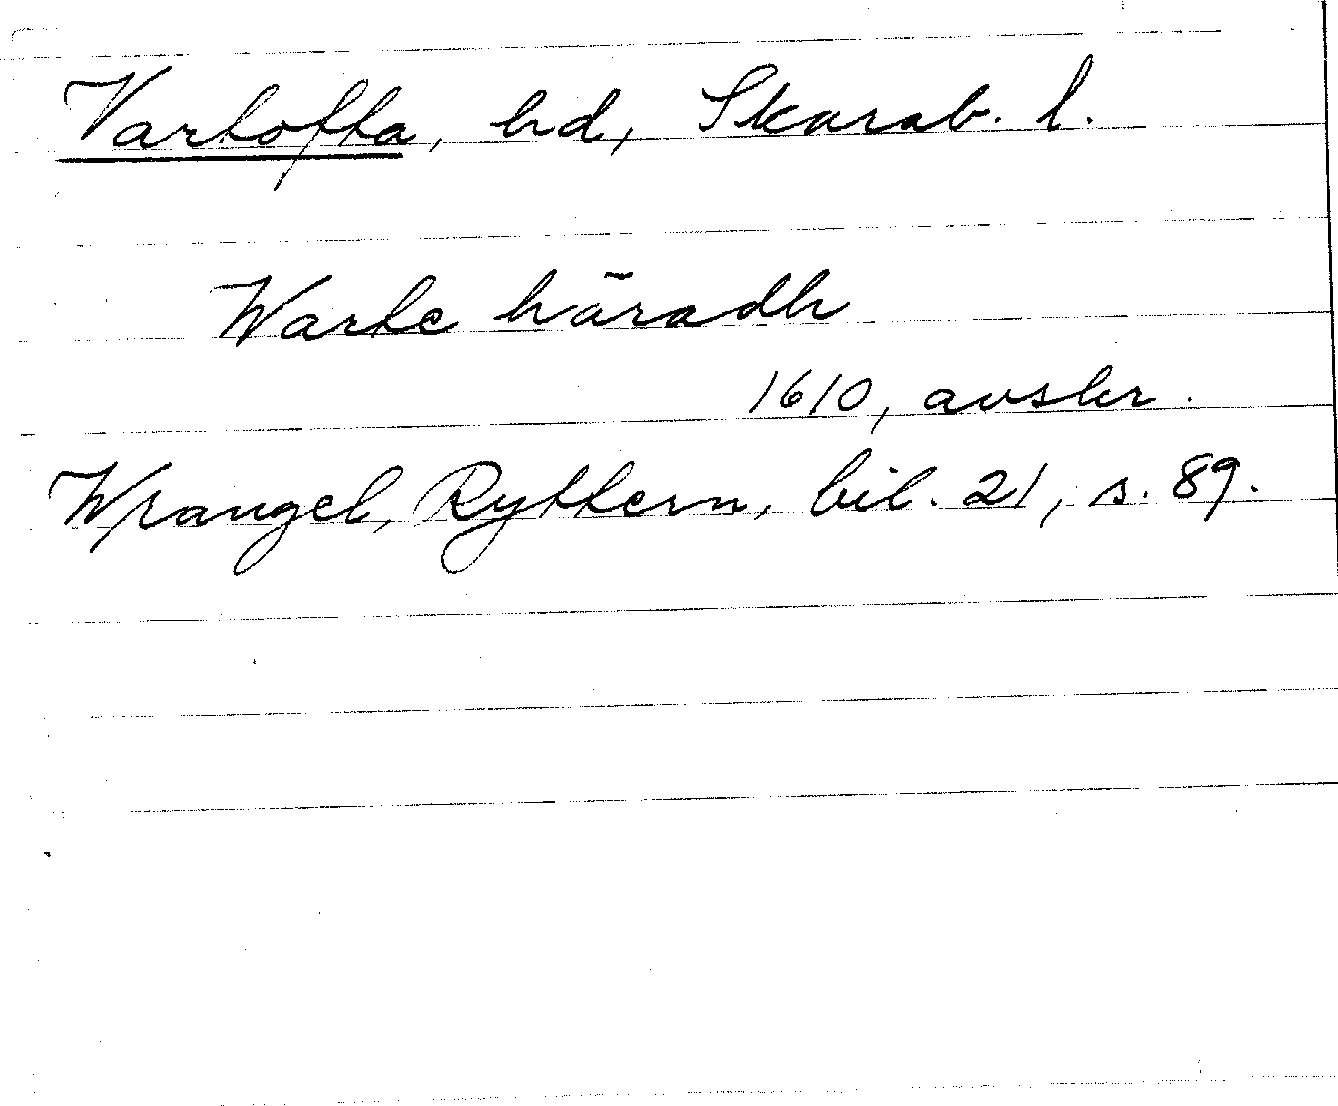 Vartofta, hd, Skarab. l.
Warte häradh
1610, avskr.
Wrangel, Ryttern, bil. 21, s. 89.